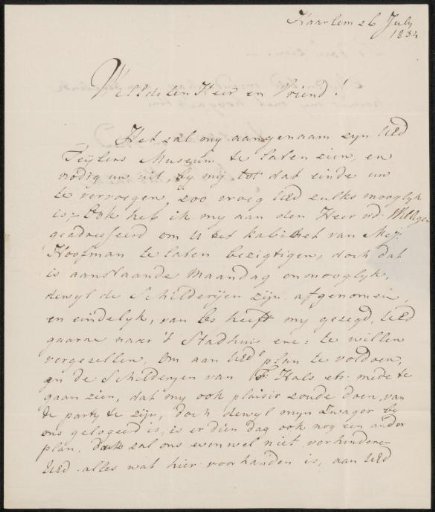 Haarlem 26 July
1834
WelEdelen Heer en Vriend!
Het zal my aangenaam zyn UEd
Teylers Museum te laten zien, en
nodig uw uit, by my tot dat einde uw
te vervoegen, zoo vroeg UEd zulks mogelyk
is; Ook heb ik my aan den Heer vd Willigen
geadresseerd om U het kabinet van Mej.
Hoofman te laten bezigtigen, doch dat
is aanstaande Maandag onmogelyk,
dewyl de Schilderyen zyn afgenomen,
en eindelyk, van heeft my gezegd, UEd
gaarne naar 't Stadhuis te willen
vergezellen, om aan UEds plan te voldoen,
en de Schilderyen van F Hals mede te
gaan zien, dat my ook plaisir zoude doen, van
de party te zyn, doch dewyl myn Zwager by
ons gelogeerd is, is er dien dag ook nog een ander
plan, zal ons evenwel niet verhinderen
UEd alles wat hier voorhanden is, aan UEd